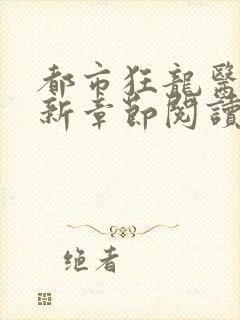 都市狂龍醫
新章節閱讀
绝者